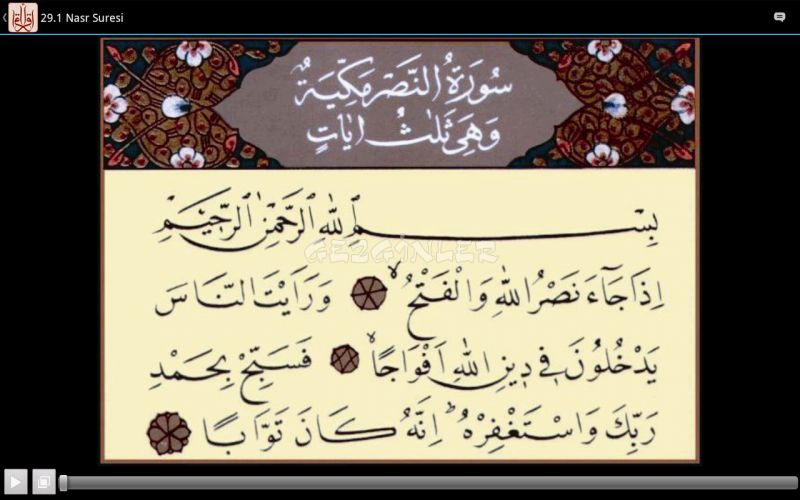 29.1 Nasr Suresi
سُورَةُ النَّصْرِ مَكِّيَّةٌ
وَهِيَ ثَلٰثُ اٰيَاتٍ
بِسْمِ اللّٰهِ الرَّحْمٰنِ الرَّحٖيمِ
GEZGİNLER
اِذَا جَٓاءَ نَصْرُ اللّٰهِ وَالْفَتْحُۙ وَرَاَيْتَ النَّاسَ
يَدْخُلُونَ فٖي دٖينِ اللّٰهِ اَفْوَاجًاۙ فَسَبِّحْ بِحَمْدِ
رَبِّكَ وَاسْتَغْفِرْهُؕ اِنَّهُ كَانَ تَوَّابًا